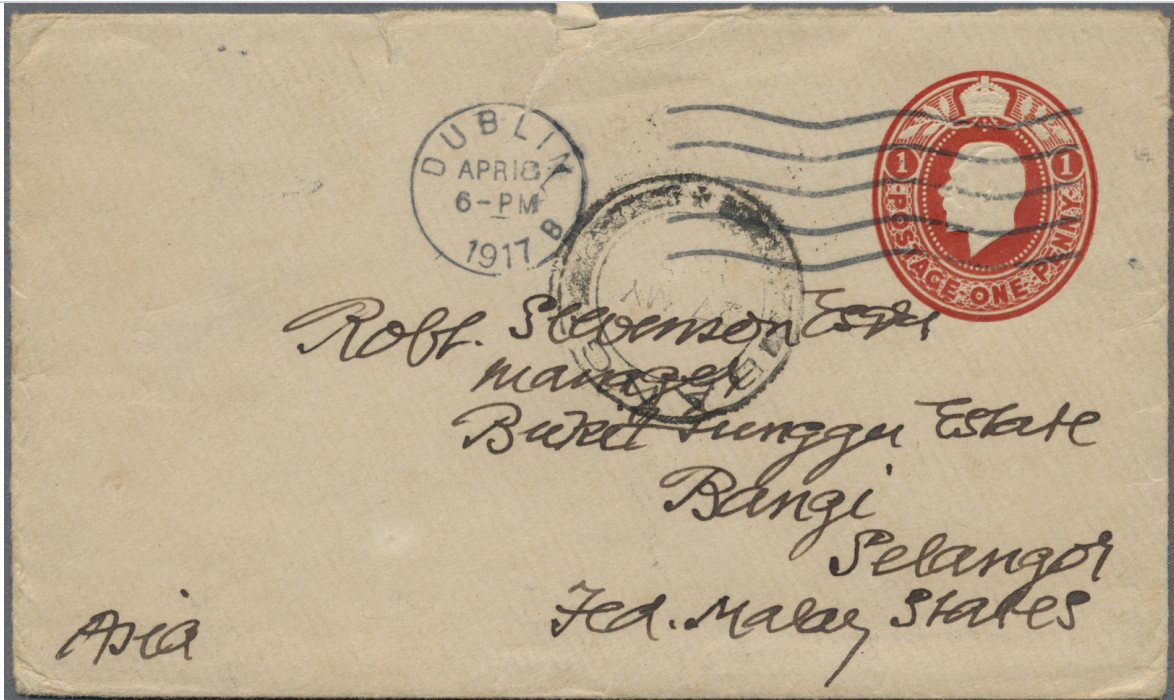 DUBLIN
APR 18
6-PM
1917
B
1 1
POSTAGE ONE PENNY
Robt. Stevenson Esqr
manager
Bukit Tunggu Estate
Bangi
Selangor
Fed. Malay States
Asia